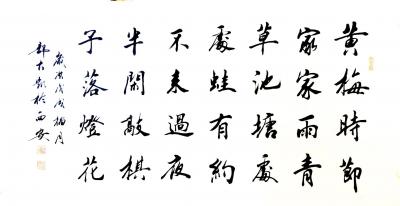 黄梅時節
家家雨青
草池塘處
處蛙有約
不来過夜
半閑敲棋
子落燈花
歲次戊戌桐月
於西安